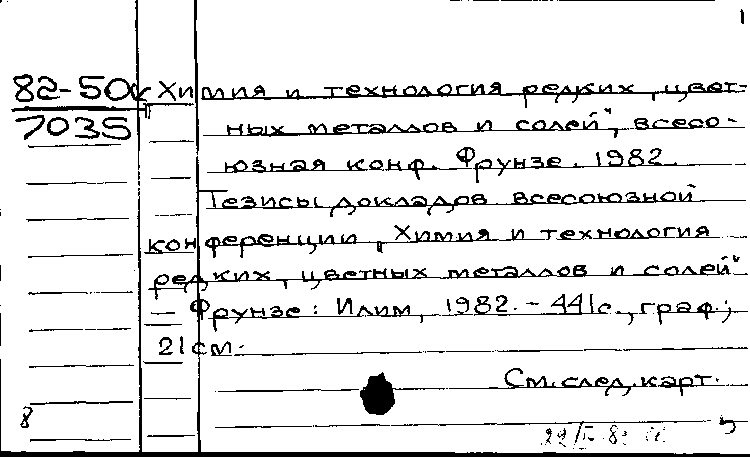 1
82-50к Химия и технология редких, цвет-
7035 ных металлов и солей", всесо-
юзная конф. Фрунзе. 1982.
Тезисы докладов всесоюзной
конференции „Химия и технология
редких, цветных металлов и солей"
— Фрунзе: Илим, 1982. - 441с., граф.;
21см.
См. след. карт.
8